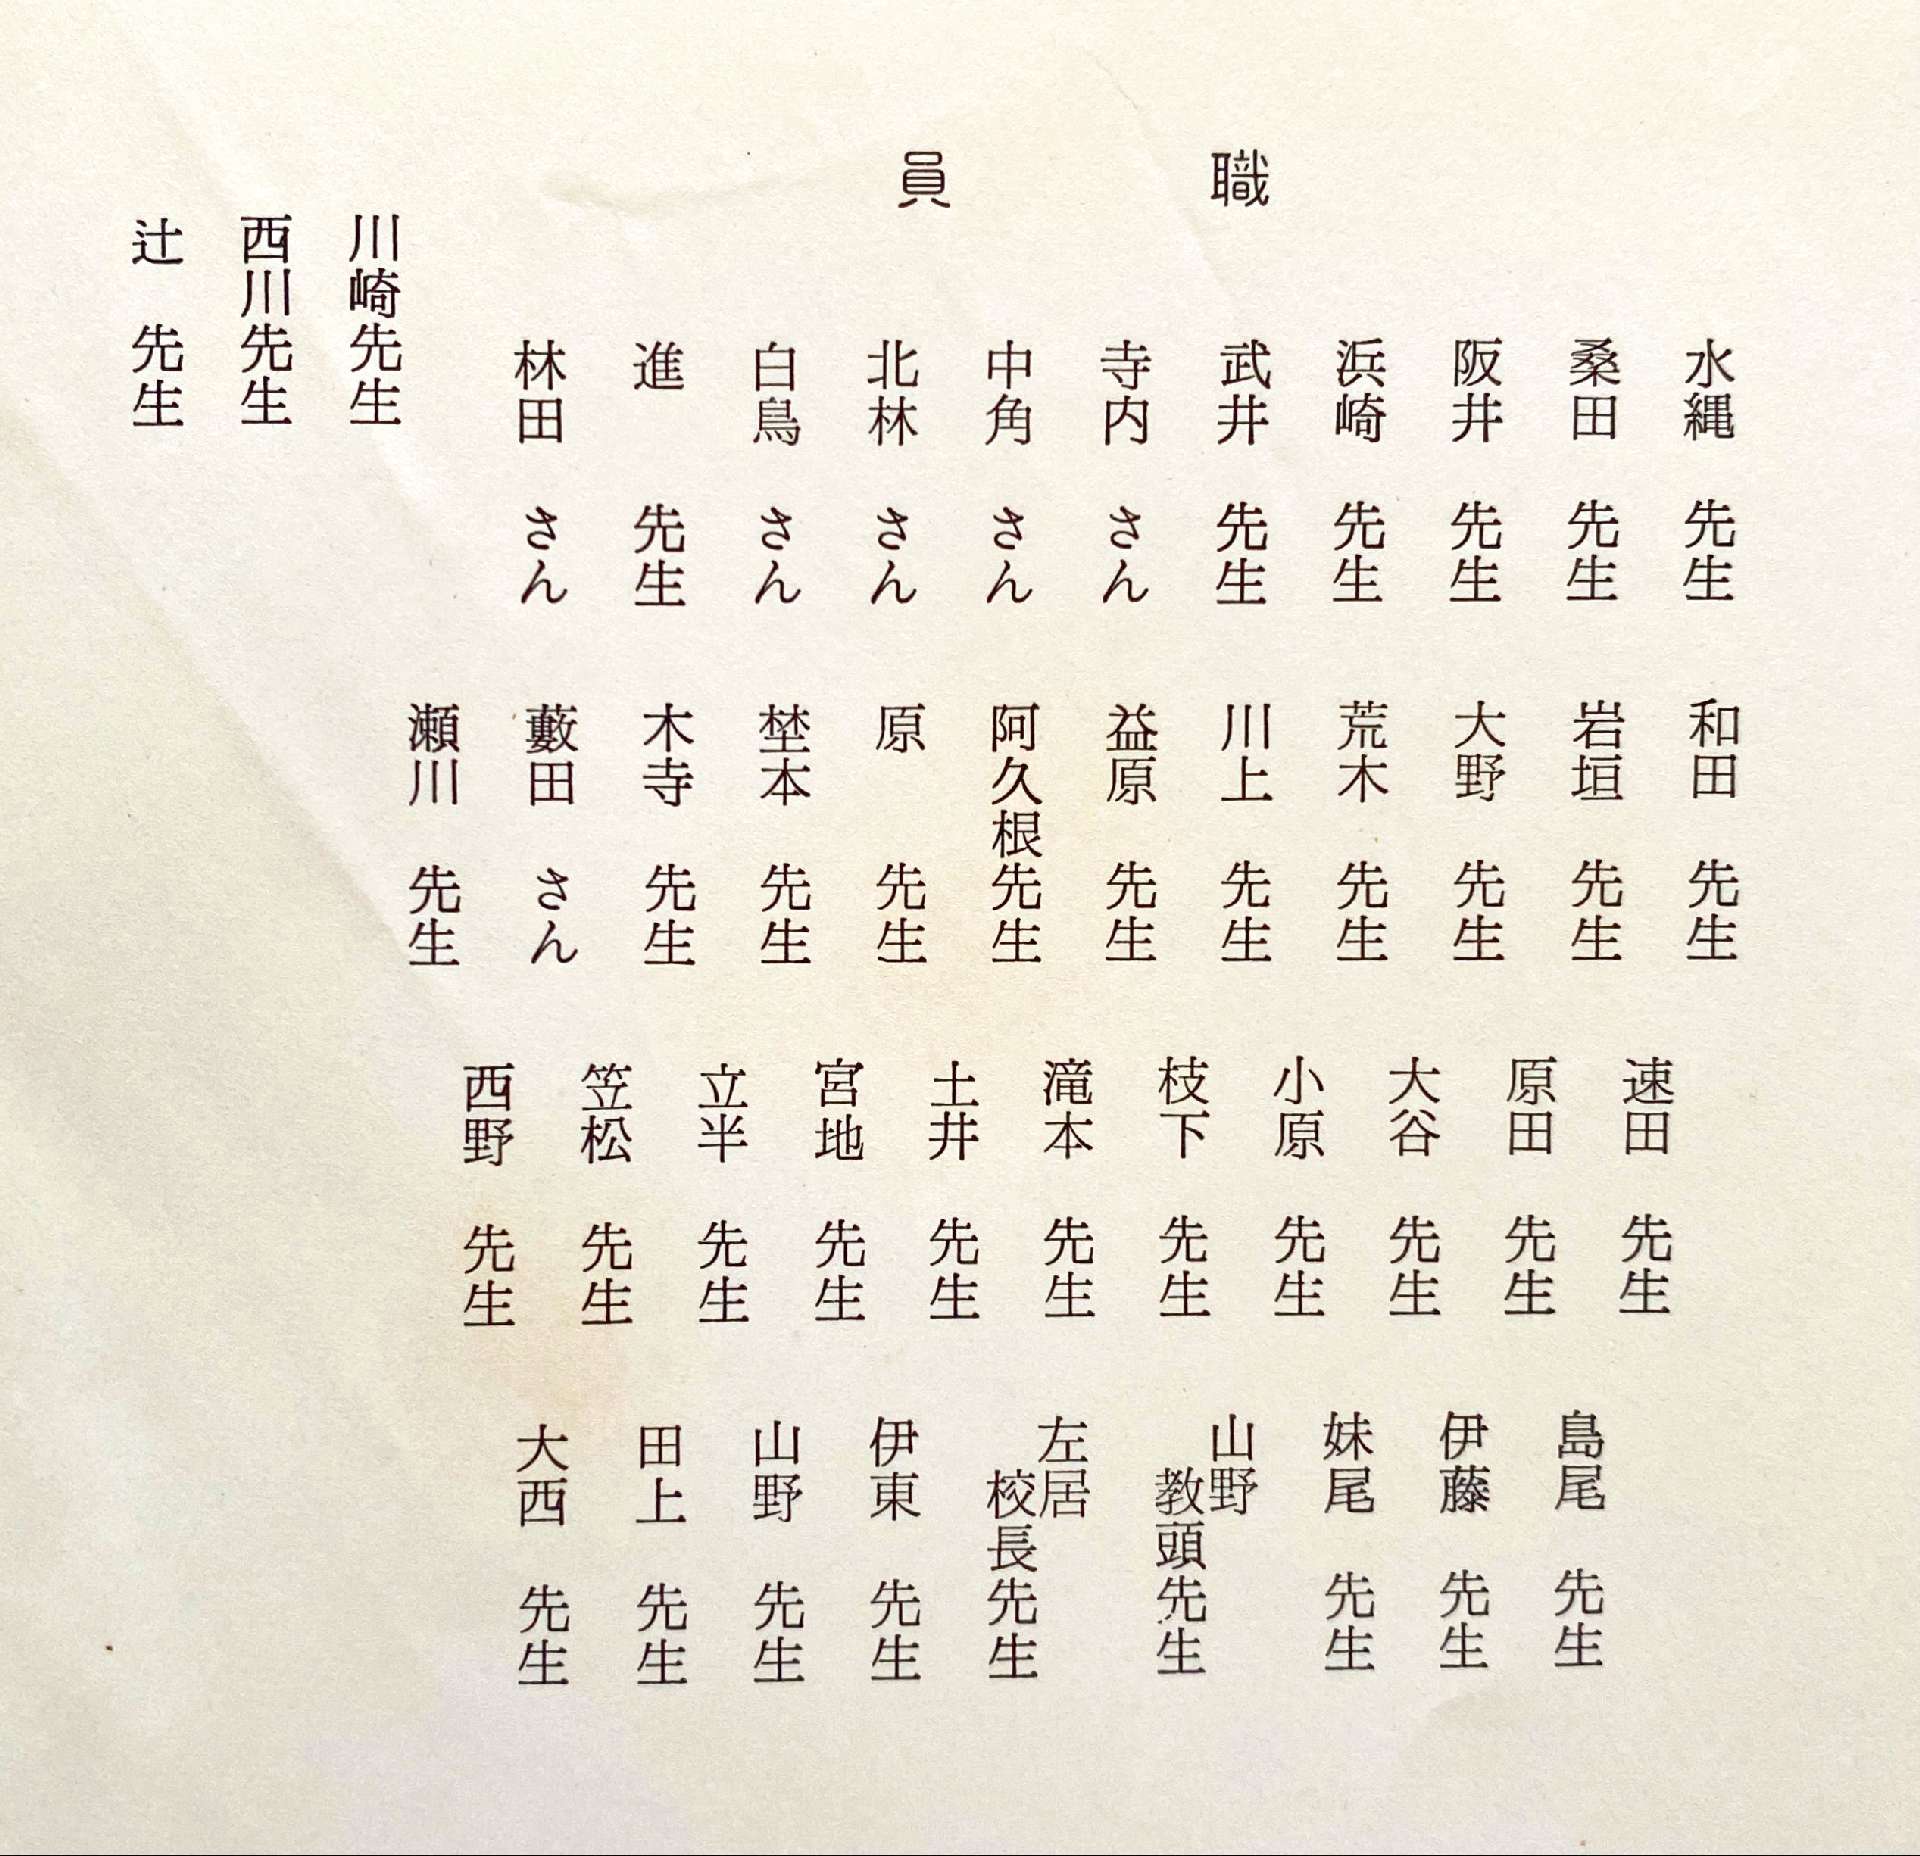 職員
水縄 先生
桑田 先生
阪井 先生
浜崎 先生
武井 先生
寺内 さん
中角 さん
北林 さん
白鳥 さん
進 先生
林田 さん
川崎先生
西川先生
辻 先生
和田 先生
岩垣 先生
大野 先生
荒木 先生
川上 先生
益原 先生
阿久根先生
原 先生
埜本 先生
木寺 先生
藪田 さん
瀬川 先生
速田 先生
原田 先生
大谷 先生
小原 先生
枝下 先生
滝本 先生
土井 先生
宮地 先生
立半 先生
笠松 先生
西野 先生
島尾 先生
伊藤 先生
妹尾 先生
山野
教頭先生
左居
校長先生
伊東 先生
山野 先生
田上 先生
大西 先生